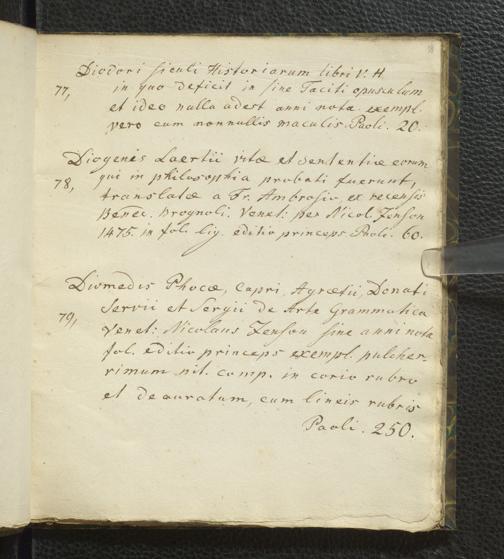 Diodori siculi Historiarum libri V. H.
77, in quo deficit in fine Taciti opusculum
et ideo nulla adest anni nota exempl.
vero cum nonnullis maculis. Paoli. 20.
Diogenis Laertii vitæ et sententiæ eorum
78, qui in philosophia probati fuerunt,
translatæ a Fr. Ambrosio ex recensis
Benec. Brognoli. Venet: per Nicol Jenson
1475. in fol. lig. editio princeps. Paoli. 60.
Diomedis Phocæ, Capri, Agrætii, Donati
Servii et Sergii de Arte Grammatica
79, Venet: Nicolaus Jenson sine anni nota
fol. editio princeps exempl. pulcher-
rimum nit. comp. in corio rubro
et deauratum, cum lineis rubris
Paoli. 250.